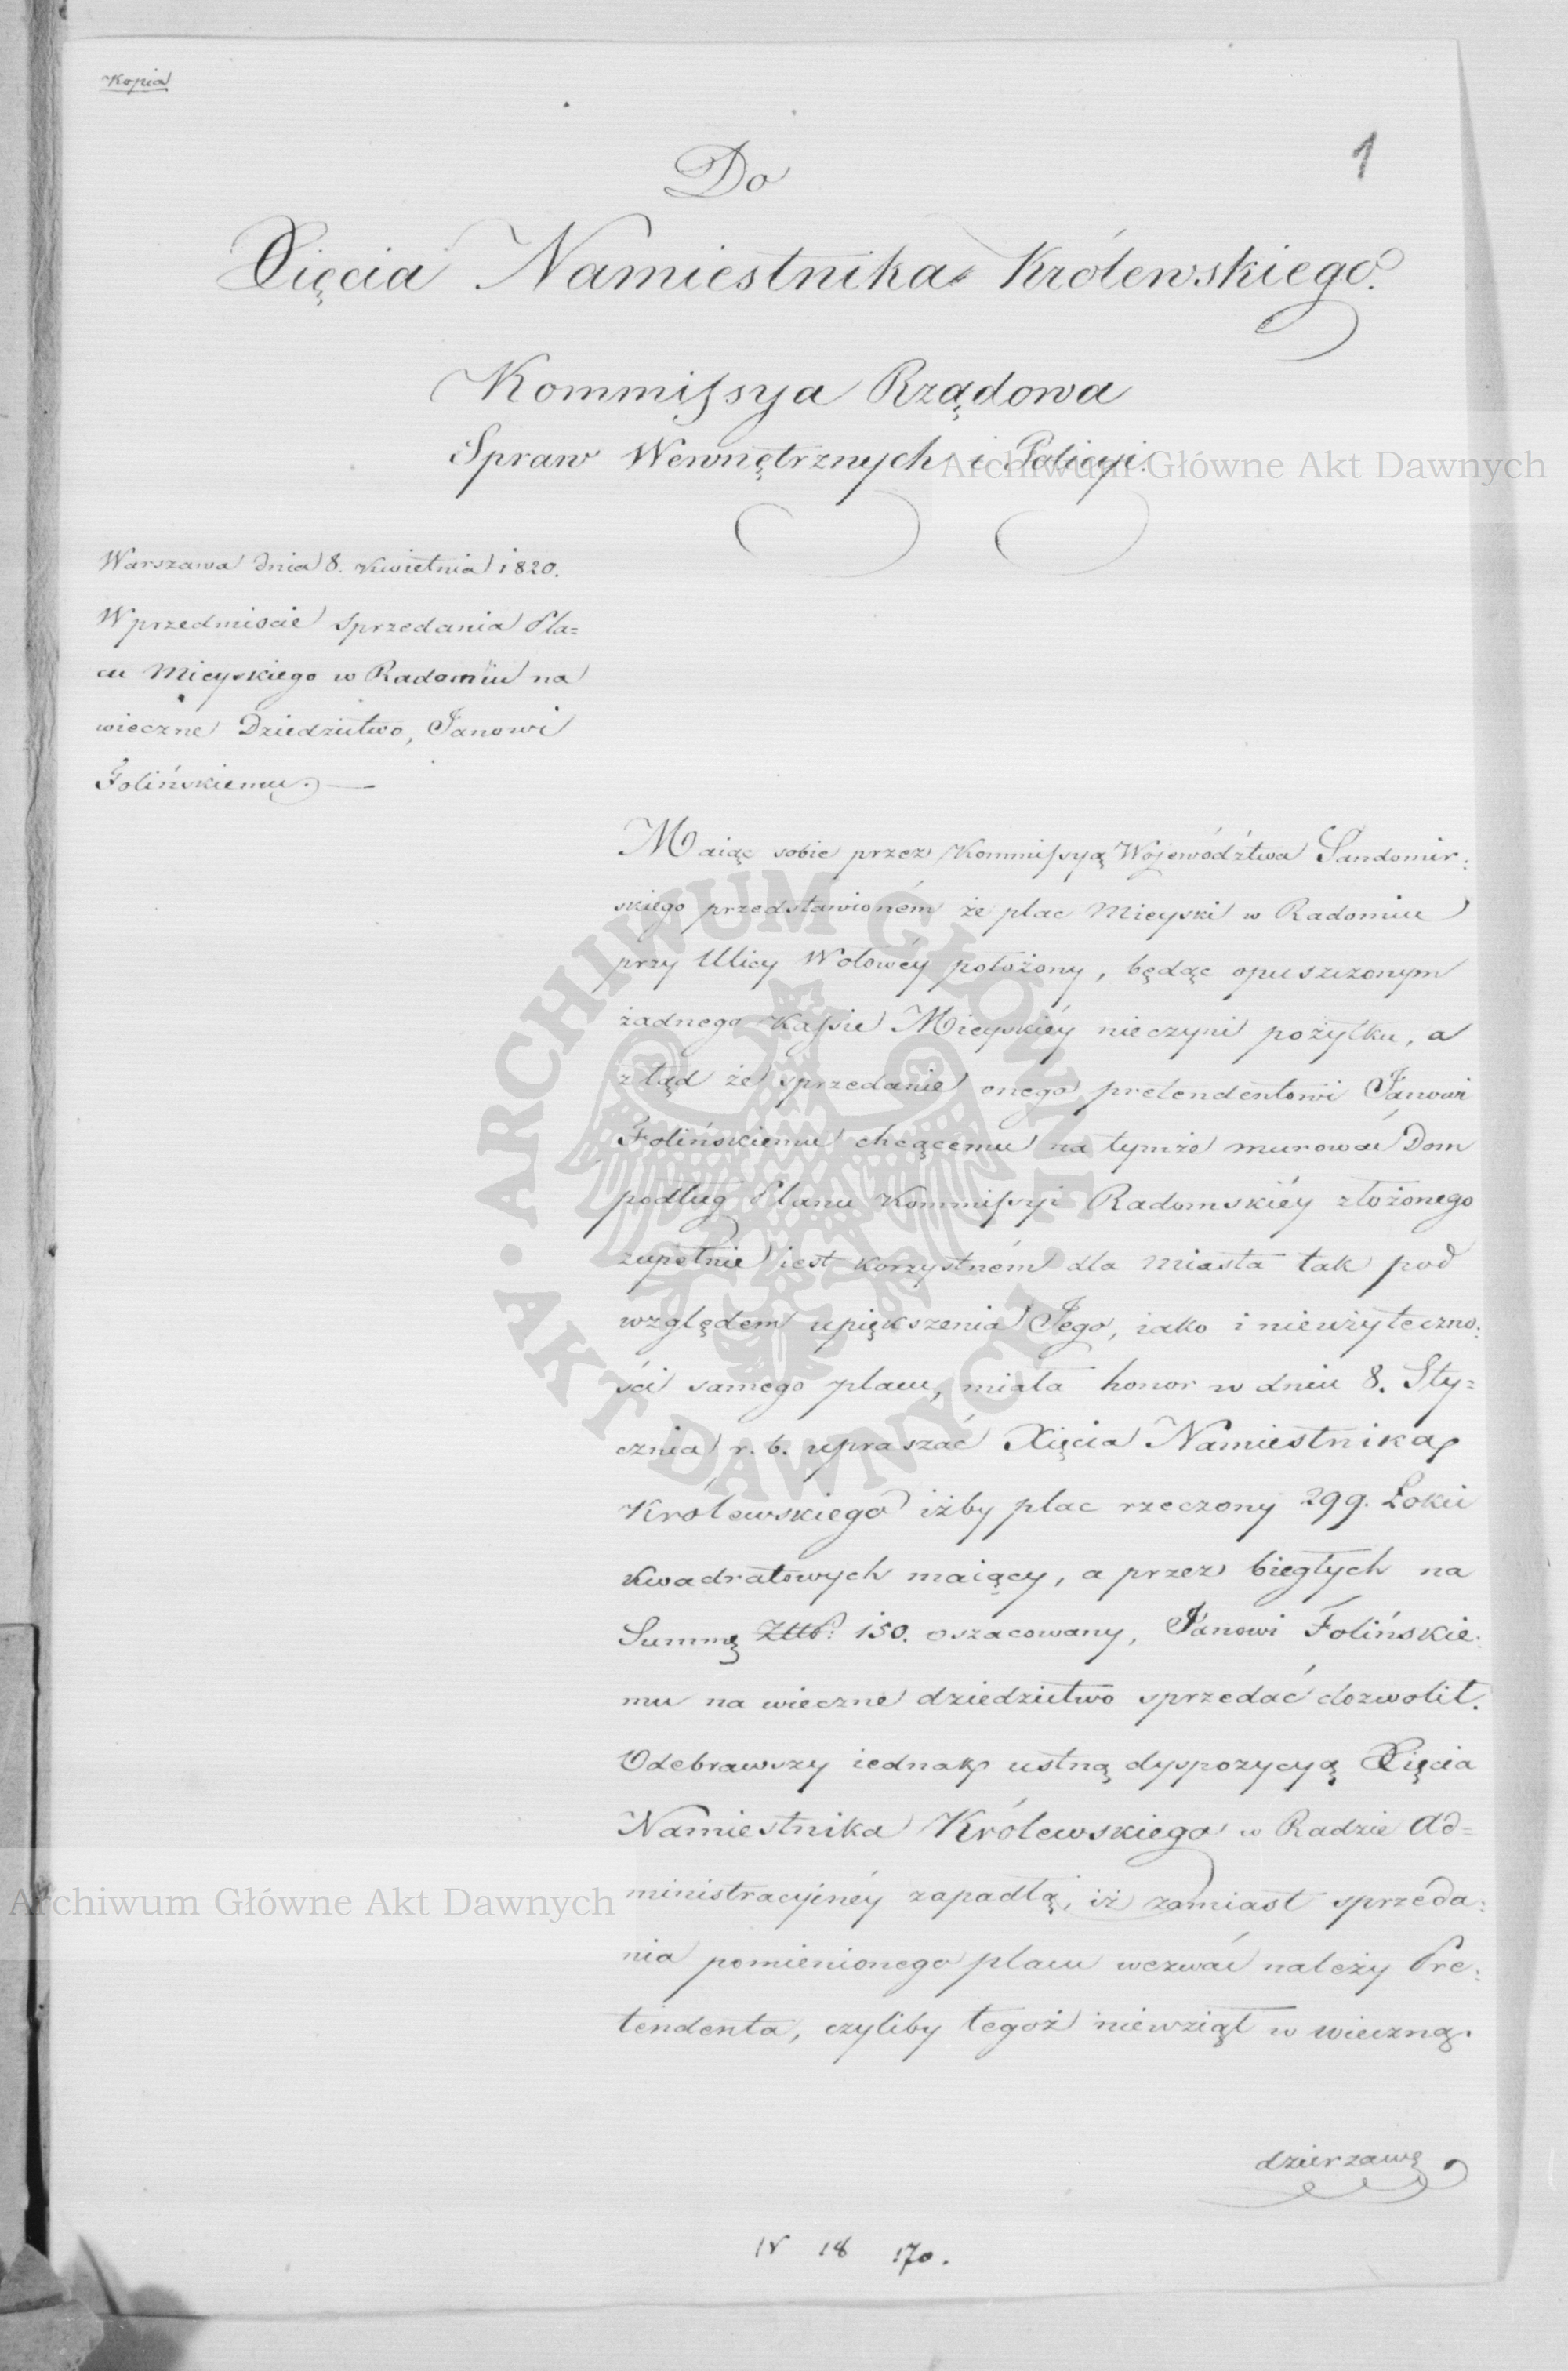 Kopia
1
Do
Xięcia Namiestnika Królewskiego.
Kommissya Rządowa
Spraw Wewnętrznych i Policyi.
Archiwum Główne Akt Dawnych
Warszawa dnia 8. Kwietnia 1820.
W przedmiocie sprzedania Pla=
cu Mieyskiego w Radomiu na
wieczne Dziedzictwo, Janowi
Folińskiemu. —
Maiąc sobie przez Kommissyą Województwa Sandomir:
skiego przedstawioném że plac Mieyski w Radomiu
przy Ulicy Wołowéy położony, będąc opuszczonym
żadnego Kassie Mieyskiéy nieczyni pożytku, a
ztąd że sprzedanie onego pretendentowi Janowi
Folińskiemu chcącemu na tymże murować Dom
podług Planu Kommissyi Radomskiéy złożonego
zupełnie iest korzystném dla Miasta tak pod
względem upiększenia Jego, iako i nieużyteczno:
ści samego placu, miała honor w dniu 8. Sty=
cznia r. b. upraszać Xięcia Namiestnika
Królewskiego iżby plac rzeczony 299. Łokci
Kwadratowych maiący, a przez biegłych na
Summę Złłp: 150. oszacowany, Janowi Folińskie:
mu na wieczne dziedzictwo sprzedać dozwolił.
Odebrawszy iednak ustną dyspozycyą Xięcia
Namiestnika Królewskiego w Radzie Ad=
ministracyjnéy zapadłą, iż zamiast sprzeda:
nia pomienionego placu wezwać należy Pre:
tendenta, czyliby tegoż niewziął w wieczną
dzierzawę
IV 18 170.
ARCHIWUM GŁÓWNE • AKT DAWNYCH •
Archiwum Główne Akt Dawnych